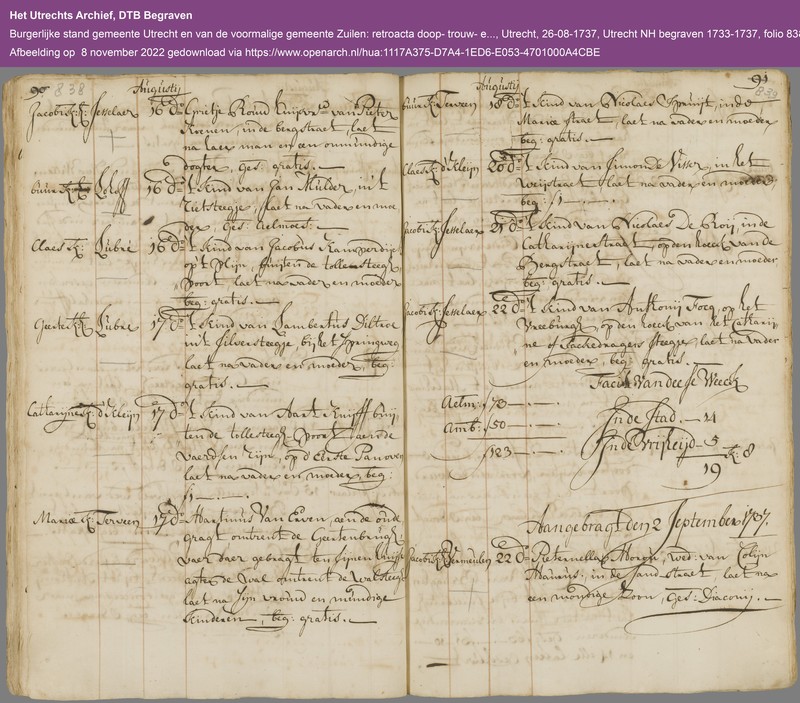 Het Utrechts Archief, DTB Begraven
Burgerlijke stand gemeente Utrecht en van de voormalige gemeente Zuilen: retroacta doop- trouw- e..., Utrecht, 26-08-1737, Utrecht NH begraven 1733-1737, folio 838
Afbeelding op 8 november 2022 gedownload via https://www.openarch.nl/hua:1117A375-D7A4-1ED6-E053-4701000A4CBE
90 838
Augustij
Jacobi k: Jesselaer 16 do Grietje
Kremer, in de bergstraet, laet
na haer man en een onmundige
dogter, ges: gratis.
buur k: Loloff 16 do 't kind van Jan Mulder, in 't
steegje, laet na vader en moe
der, ges: aelmoes:
Claes k: Lubre 16 do 't kind van Jacobus
op 't plijn, buijten de tollesteegh
poort laet na vader en moeder
beg: gratis.
Geerte k: Lubre 17 do 't kind van Lambertus
in 't Silversteegje bij het Springweg
laet na vader en moeder, beg:
gratis.
Catharijne k: d'Kleijn 17 do 't kind van Aart Kuijff buij
ten de tollesteegh-poort aen de
vaertse Rijn, op d'Eerste Panoven
laet na vader en moeder, beg:
f1
Maria k: Terveen 17 do Harmus Van Erven, aen de oude
gragt omtrent de Geertenbrugh
van daer gebragt ten sijnen huijse
agter de Wal omtrent de Walsteegh
laet na sijn vrouw en mundige
kinderen, beg: gratis.
91
839
Augustij
buur k: Terveen 18 do 't kind van Nicolaes Spruijt, in de
Maria straet, laet na vader en moeder
beg: gratis.
Claes k: d'Kleijn 20 do 't kind van Simon de Visser, in het
Weijstraet laet na vader en moeder
beg: f1
Jacobi k: Jesselaer 21 do 't kind van Nicolaes De Roij, in de
Catharijnestraet, op den hoeck van de
Bergstraet, laet na vader en moeder
beg: gratis.
Jacobi k: Jesselaer 22 do 't kind van Anthonij Focq, op het
Vreeburgh, op den hoeck van het Catharij
ne of Sackedragers steegje, laet na vader
en moeder, beg: gratis.
Facit Van deese Weeck
Aelm: f73
Amb: f50
f123
In de Stad 14
In de Vrijheijd 5
19
k: 8
Aangebragt den 2 September 1737.
Jacobi k: Vermeulen 22 do Pieternella Horen, wed: van Colijn
Adamus, in de Sandstraet, laet na
een mondige Soon, Ges: Diaconij.